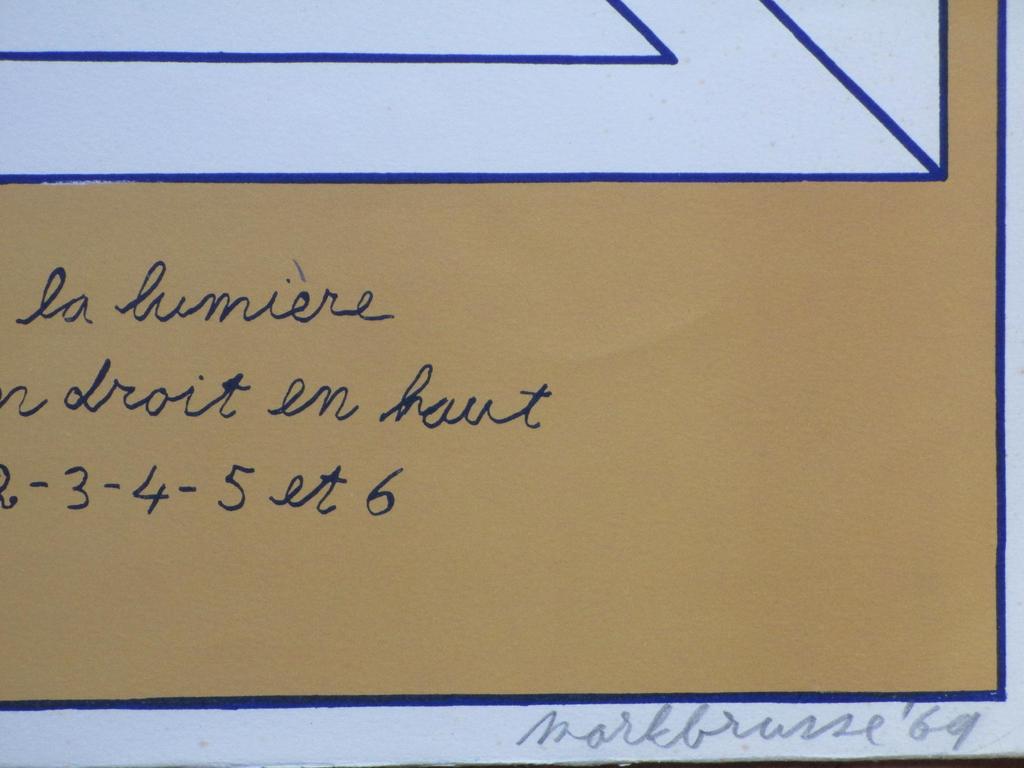 la lumière
n droit en haut
2-3-4-5 et 6
markbrusse '69